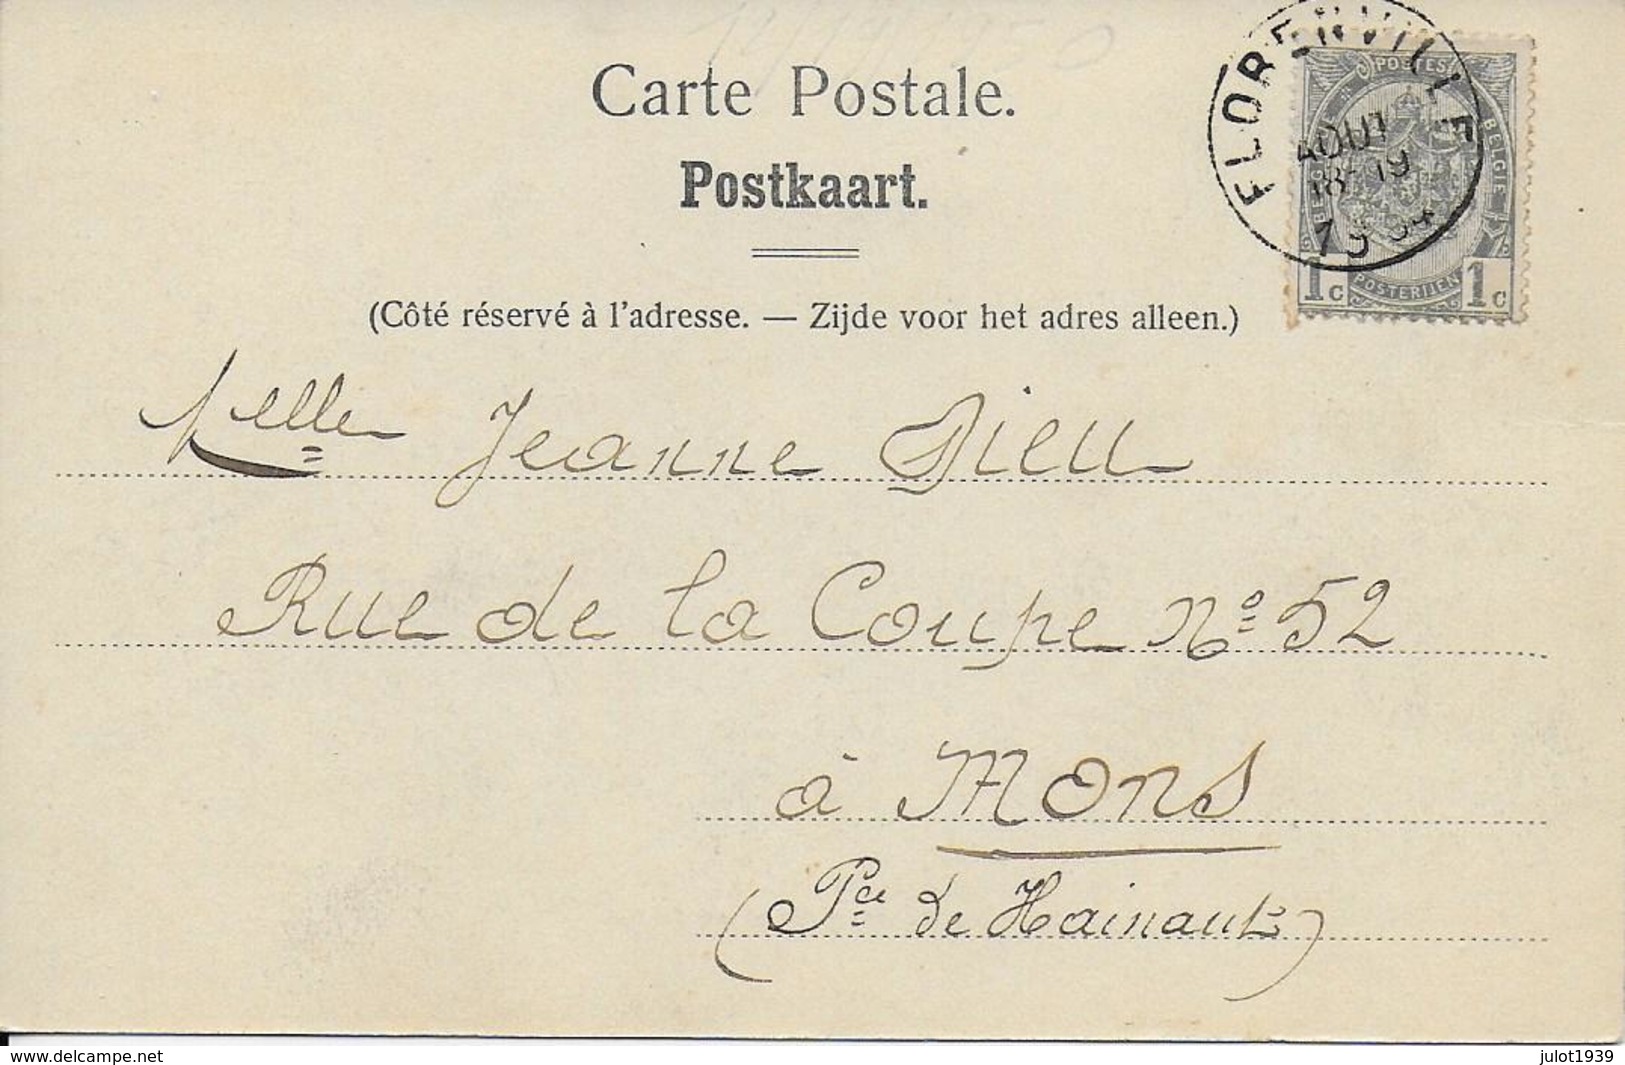 Carte Postale.
Postkaart.
(Côté réservé à l'adresse. — Zijde voor het adres alleen.)
FLORENVILLE
AOUT
18-19
POSTES
BELGIE
BELGIQUE
POSTERIJEN
1c 1c
Melle Jeanne Dieu
Rue de la Coupe No 52
à Mons
(Pce de Hainaut)
www.delcampe.net
julot1939